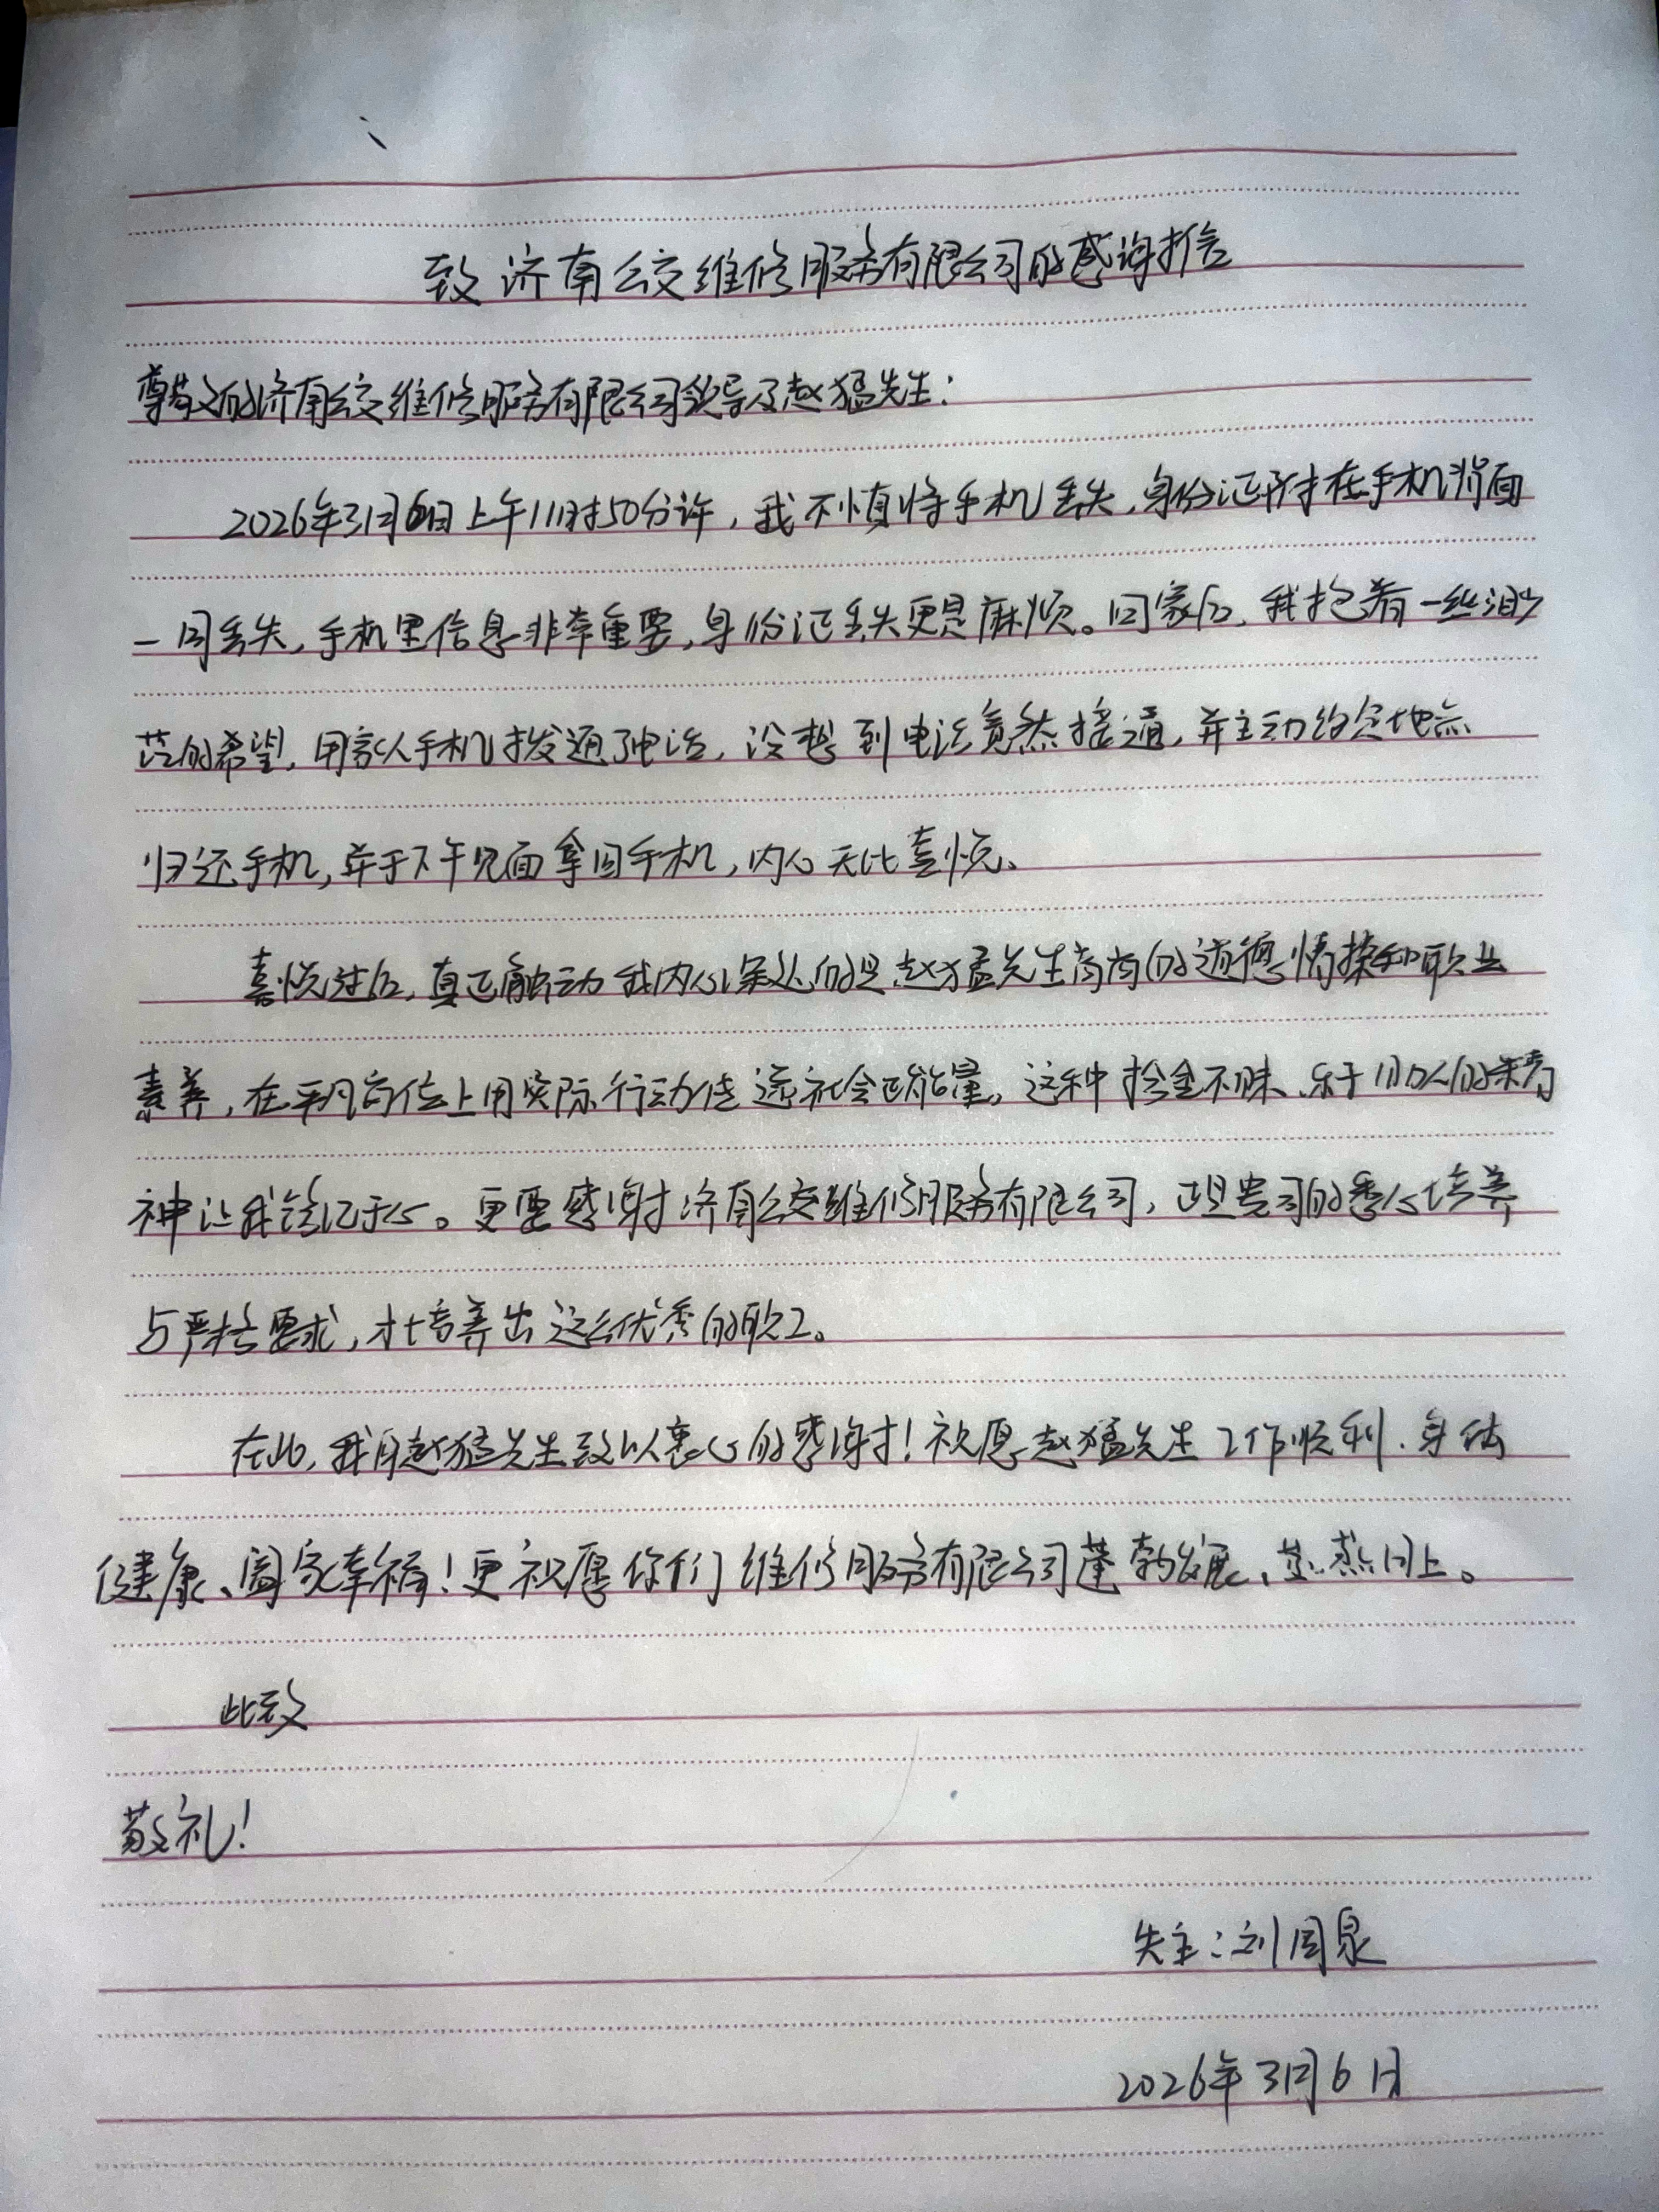 致济南公交维修服务有限公司的感谢信
尊敬的济南公交维修服务有限公司领导及赵猛先生：
2026年3月6日上午11时50分许，我不慎将手机丢失，身份证附在手机背面
一同丢失，手机里信息非常重要，身份证丢失更是麻烦。回家后，我抱着一丝渺
茫的希望，用家人手机拨通了电话，没想到电话竟然接通，并主动约定地点
归还手机，并于下午见面拿回手机，内心无比喜悦、
喜悦过后，真正触动我内心深处的是赵猛先生高尚的道德情操和职业
素养，在平凡岗位上用实际行动传递社会正能量。这种拾金不昧、乐于助人的精
神让我铭记于心。更要感谢济南公交维修服务有限公司，正是贵司的悉心培养
与严格要求，才培养出这么优秀的职工。
在此，我向赵猛先生致以衷心的感谢！祝愿赵猛先生工作顺利、身体
健康、阖家幸福！更祝愿你们维修服务有限公司蓬勃发展、蒸蒸日上。
此致
敬礼！
失主：刘国泉
2026年3月6日